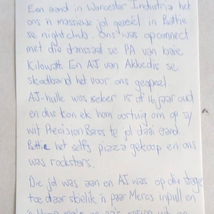 Een aand in Worcester Industria het
ons 'n massiewe jol gereël in Bothe
se nightclub. Ons was op connect
met die dansaad se PA van bare
Kilowatt. En AJ van Akkedis se
skoolband het voor ons gespeel.
AJ-hulle was seker 15 of 16 jaar oud
en dus kon ek hom oortuig om op sy
wit Precision Bass te jol daai aand
Bothe het selfs pizza gekoop en ons
was rockstars.
Die jol was aan en AJ was op die stage
toe daar skielik 'n paar Mercs inpull en